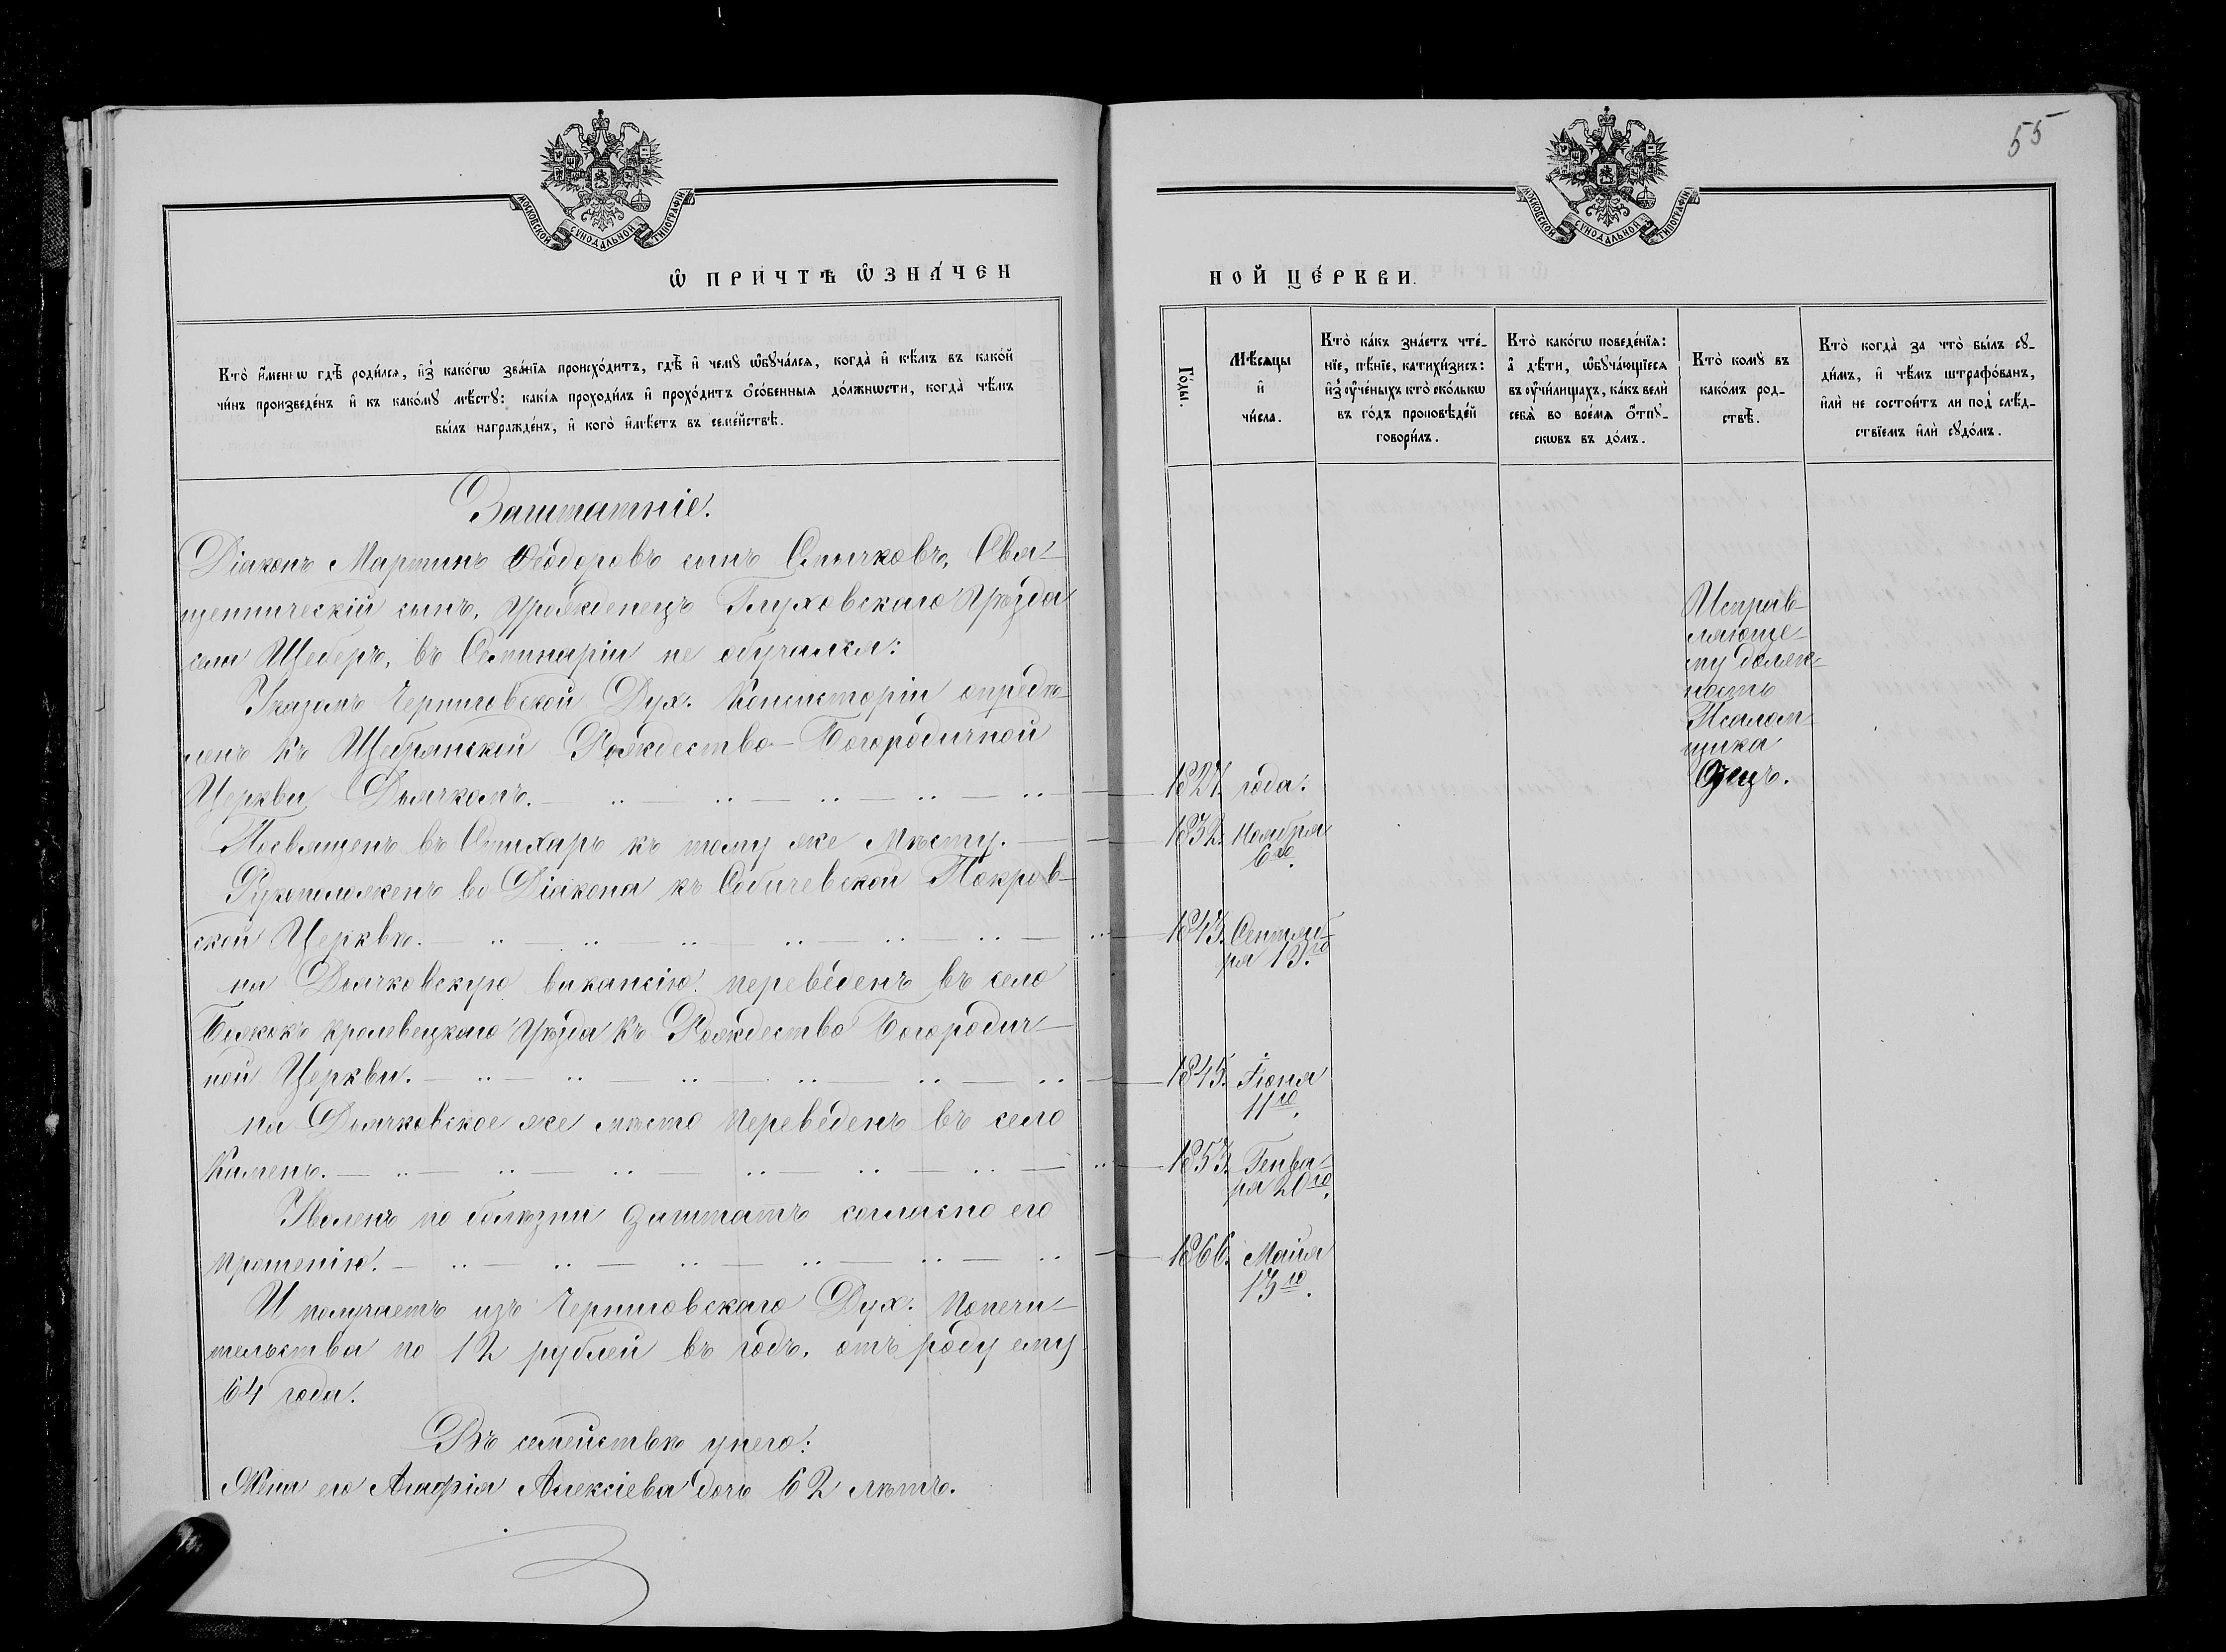 55
МОСКОВСКОЙ СѴНОДАЛЬНОЙ ТИПОГРАФІИ
МОСКОВСКОЙ СѴНОДАЛЬНОЙ ТИПОГРАФІИ
Ѿ ПРИ́ЧТѢ Ѡ҆ЗНА́ЧЕН
НОЙ ЦЕ́РКВИ.
Кто̀ и҆́меннѡ гдѣ̀ роди́лсѧ, и҆з̾ како́гѡ зва́нїѧ происхо́дитъ, гдѣ̀ и҆ чемꙋ̀ ѡ҆бꙋча́лсѧ, когда̀ и҆ кѣ́мъ въ како́й
чи́нъ произведе́нъ и҆ къ како́мꙋ мѣ́стꙋ: какі́ѧ проходи́лъ и҆ прохо́дитъ ѻ҆со́бенныѧ до́лжнѡсти, когда̀ чѣ́мъ
бы́лъ награжде́нъ, и҆ кого̀ и҆мѣ́етъ въ семе́йствѣ.
Го́ды.
Мѣ́сѧцы
и҆
чи́сла.
Кто̀ ка́къ зна́етъ чте́-
нїе, пѣ́нїе, катихи́зисъ:
и҆з̾ ѹ҆че́ныхъ кто̀ ско́лькѡ
въ го́дъ проповѣ́дей
говори́лъ.
Кто̀ како́гѡ поведе́нїѧ:
а҆ дѣ́ти, ѡ҆бꙋча́ющїесѧ
въ ѹ҆чи́лищахъ, ка́къ велѝ
себѧ̀ во вре́мѧ ѻ҆́тпꙋ-
скѡвъ въ до́мъ.
Кто̀ комꙋ̀ въ
како́мъ род-
ствѣ̀.
Кто̀ когда̀ за что̀ бы́лъ сꙋ-
ди́мъ, и҆ чѣ́мъ штрафо́ванъ,
и҆лѝ не состои́тъ ли под̾ слѣ́д-
ствїемъ и҆лѝ сꙋдо́мъ.
Заштатніе.
Діаконъ Мартинъ Ѳеодоровъ сынъ Спичковъ, Свя-
щенническій сынъ, Урожденецъ Глуховскаго Уѣзда
села Щебръ, въ Семинаріи не обучался:
Указомъ Черниговской Дух. Консисторіи опредѣ-
ленъ къ Щебрянской Рождество-Богородичной
Церкви Дьячкомъ.
1827. года.
Посвященъ въ Стихарь къ тому же Мѣсту.
1832. Ноября
6го.
Рукоположенъ во Діакона къ Собичевской Покров-
ской Церквѣ.
1843. Сентяб-
ря 13го
на Дьячковскую вакансію переведенъ въ село
Божокъ Кролевецкаго Уѣзда къ Рождество Богородич-
ной Церкви.
1845. Іюня
11го.
на Дьячковское же мѣсто переведенъ въ село
Камень.
1853. Генва-
ря 20го.
Уволенъ по болѣзни заштатъ согласно его
прошенію.
1866. Майя
13го.
И получаетъ изъ Черниговскаго Дух. Попечи-
тельства по 12 рублей въ годъ, отъ роду ему
64 года.
Въ семействѣ унего:
Жена его Агафія Алексіева дочь 62 лѣтъ.
Исправ-
ляюще-
му долж-
ность
Псалом-
щика
Отецъ.